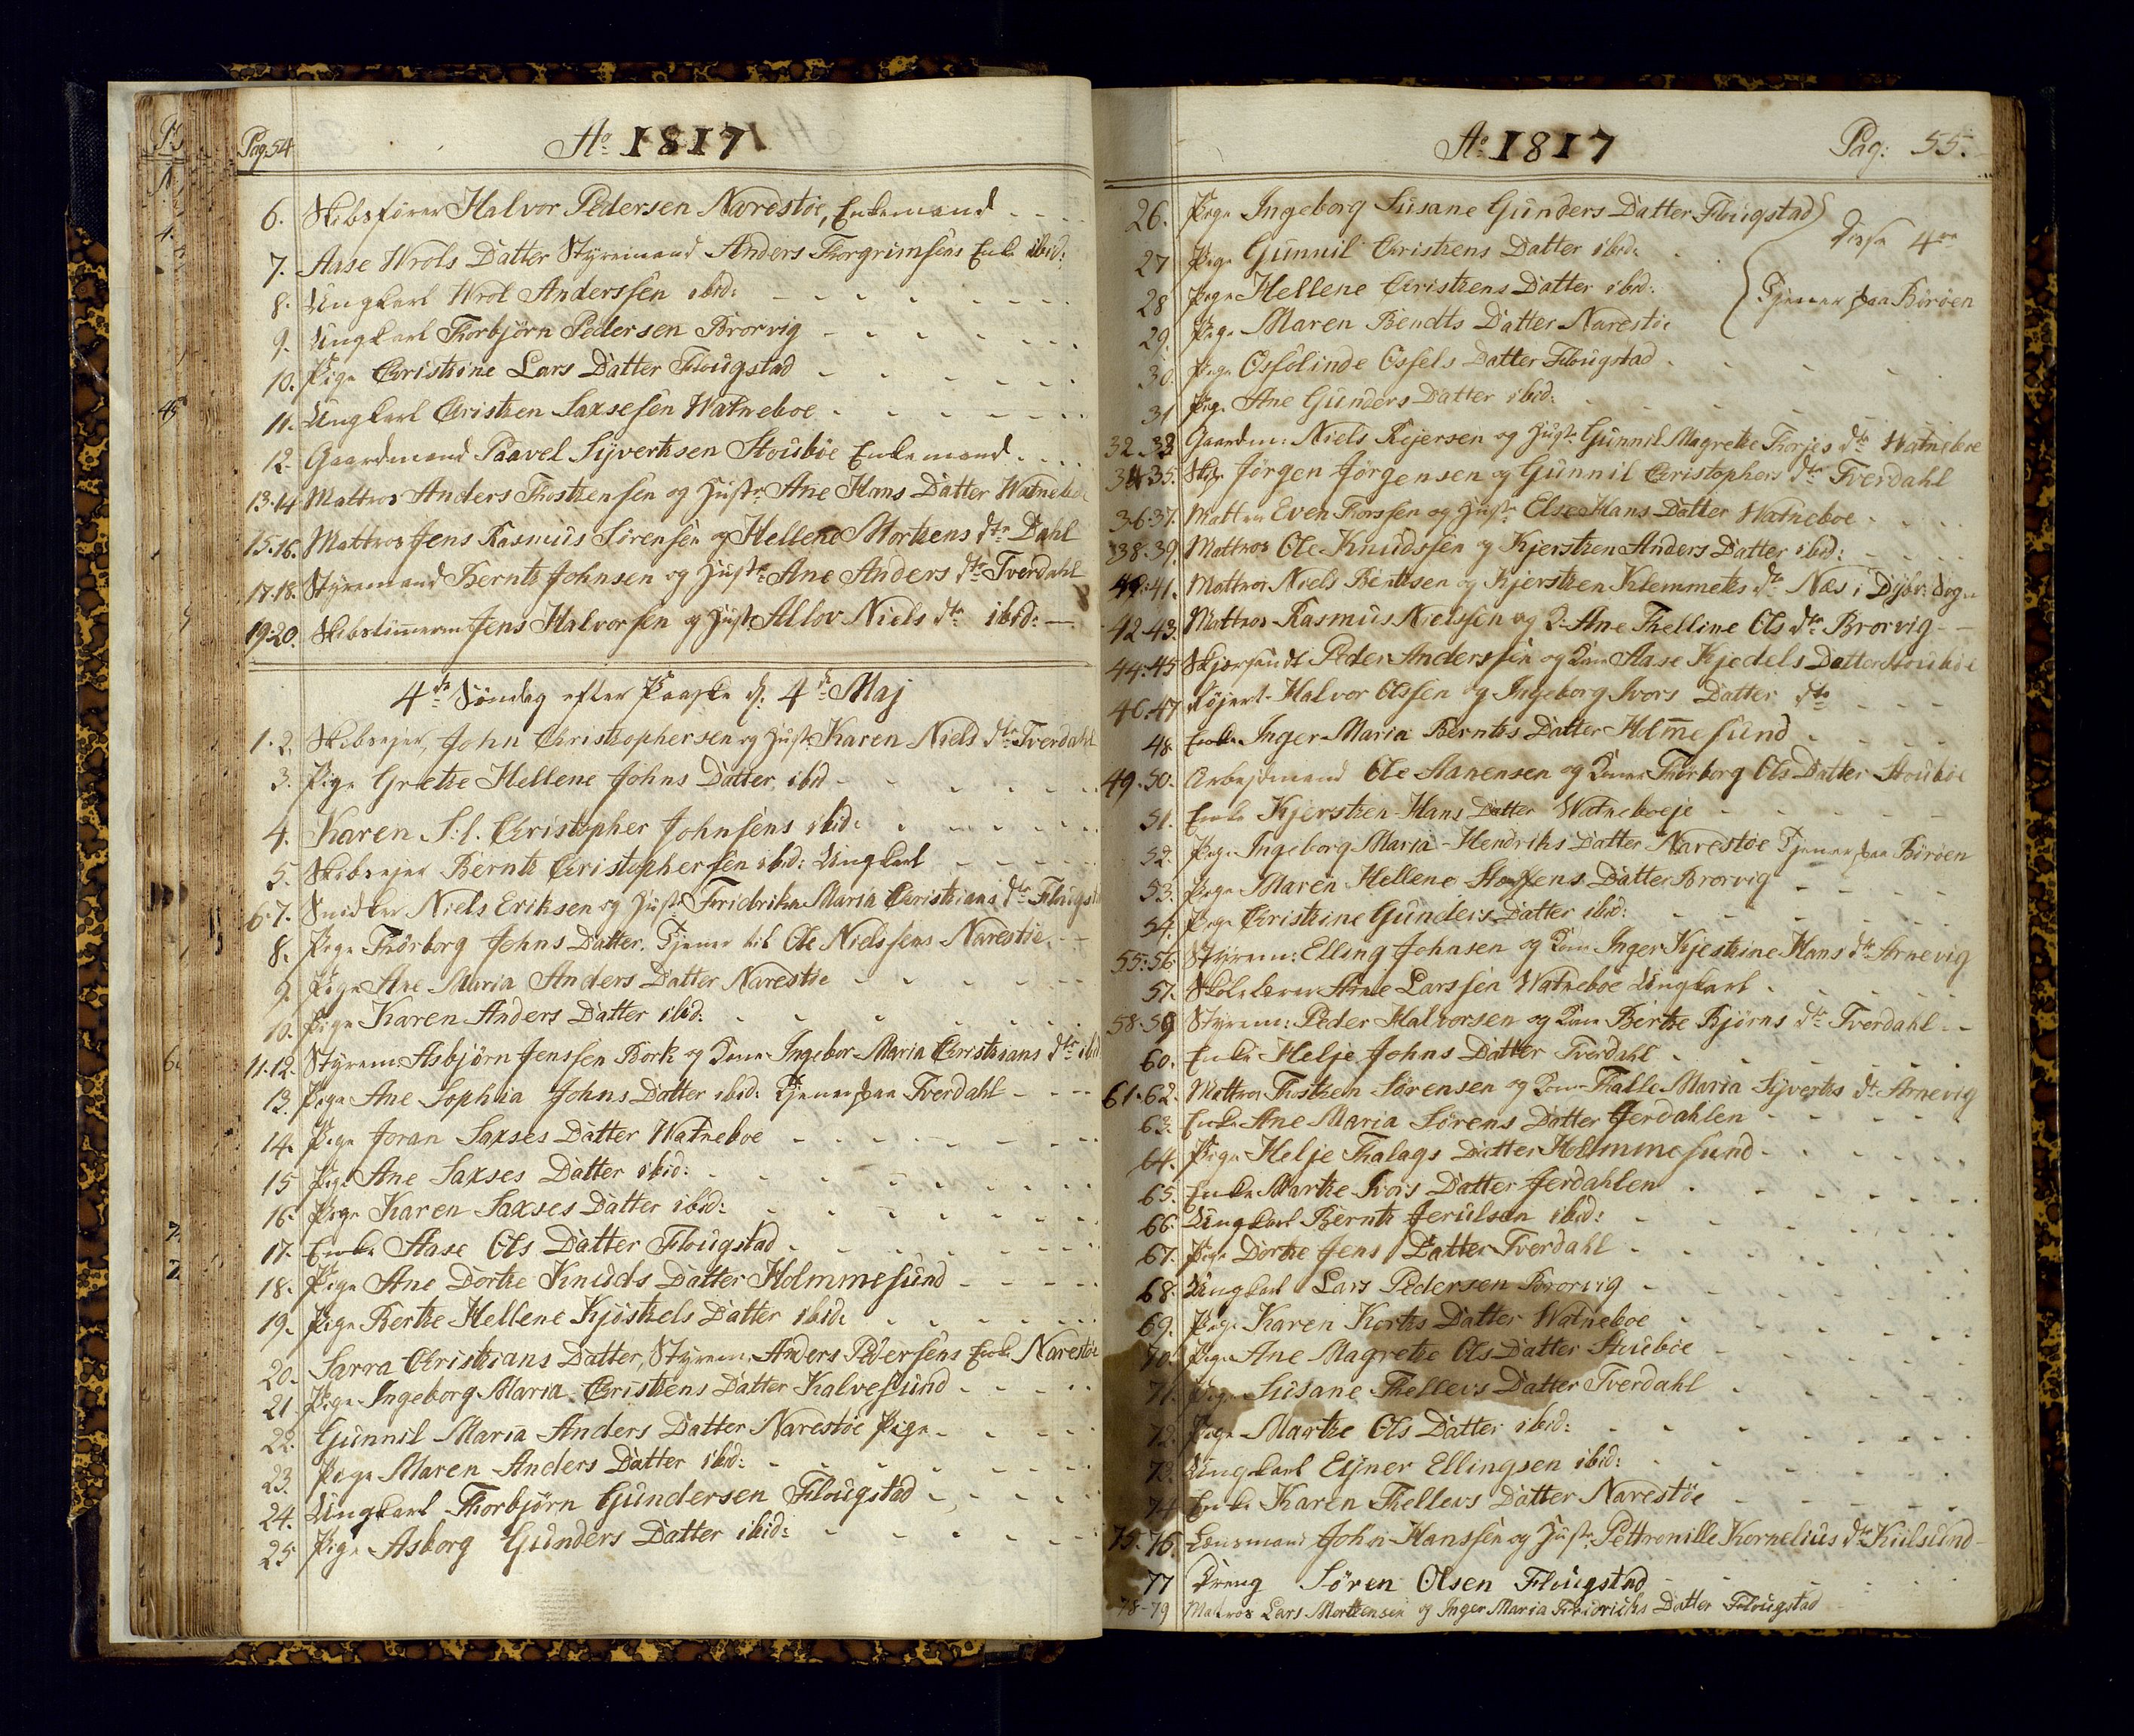 Pag: 54
Ao 1817
6. Skibsfører Halvor Pedersen Narestøe, Enkemand
7. Aase Wrols Datter Styremand Anders Thorgrimsens Enke ibid:
8. Ungkarl Wrol Anderssen ibid:
9. Ungkarl Thorbjørn Pedersen Brorvig
10. Pige Christine Lars Datter Flougstad
11. Ungkarl Christen Saxsesen Watneboe
12. Gaardmand Paavel Syvertsen Stoubøe Enkemand
13.14 Mattros Anders Thostensen og Hustr: Ane Hans Datter Watneboe
15.16. Mattros Jens Rasmus Sørensen og Hellene Mortens dtr Dahl
17.18. Styremand Bernt Johnsen og Hustr: Ane Anders dtr Tverdahl
19.20. Skibstimerm Jens Halvorsen og Hustr: Allov Niels dtr ibid:
4de Søndag efter Paaske d: 4de Maj
1.2. Skibsejer, John Christophersen og Hustr: Karen Niels dtr Tverdahl
3. Pige Grethe Hellene Johns Datter, ibid
4. Karen S:l. Christopher Johnsens ibid:
5. Skibsejer Bernt Christophersen ibid: Ungkarl
6.7. Snidker Niels Eriksen og Hustr: Fridrikke Maria Christians dtr Flougst
8. Pige Thorborg Johns Datter. Tjener til Ole Nielssens Narestøe
9. Pige Ane Maria Anders Datter Narestøe
10. Pige Karen Anders Datter ibid:
11.12. Styrem: Asbjørn Jenssen Bork og Kone Ingebor Maria Christians dtr ibid
13. Pige Ane Sophia Johns Datter ibid: Tjener paa Tverdahl
14. Pige Joran Saxses Datter Watneboe
15 Pige Ane Saxses Datter ibid:
16. Pige Karen Saxses Datter ibid:
17. Enke Aase Ols Datter Flougstad
18. Pige Ane Dorthe Knuds Datter Holmmesund
19. Pige Berthe Hellene Kjøstels Datter ibid:
20. Sarra Christians Datter, Styrem: Anders Pedersens Enke Narestøe
21. Pige Ingeborg Maria Christens Datter Kalvesund
22. Gunnil Maria Anders Datter Narestøe Pige
23. Pige Maren Anders Datter ibid:
24. Ungkarl Thorbjørn Gundersen Flougstad
25 Pige Asborg Gunders Datter ibid:
Ao 1817 Pag: 55.
26. Pige Ingeborg Susane Gunders Datter Flougstad
27 Pige Gunnil Christens Datter ibid:
28 Pige Hellene Christens Datter ibid:
29. Pige Maren Bendts Datter Narestøe
Disse 4re
Tjener paa Borøen
30. Pige Osfolinde Osfels Datter Flougstad
31 Pige Ane Gunders Datter ibid:
32.33 Gaardm: Niels Rejersen og Hustr: Gunnil Magrethe Thorjes dtr Watneboe
34.35. Jørgen Jørgensen og Gunnil Christophers dtr Tverdahl
36.37. Mattros Even Thorssen og Hustr: Else Hans Datter Watneboe
38.39. Mattros Ole Knudssen og Kjersten Anders Datter ibid:
40.41. Mattros Niels Bentsen og Kjersten Klemmets dtr Næs i Dybv: Sogn
42.43. Mattros Rasmus Nielssen og K: Ane Thelline Ols dtr Brorvig
44.45 Peder Anderssen og Kone Aase Kjedels Datter Stoubøe
46.47 Halvor Olssen og Ingeborg Ivors Datter dto
48. Enke Inger Maria Bernts Datter Holmesund
49.50. Arbejdmand Ole Aanensen og Kone Thorborg Ols Datter Stoubøe
51. Enke Kjersten Hans Datter Watneboeje
52. Pige Ingeborg Maria Hendriks Datter Narestøe Tjener paa Borøen
53. Pige Maren Hellene Datter Brorvig
54. Pige Christine Gunders Datter ibid:
55.56. Styrem: Elling Johnsen og Kone Inger Kjestine Hans dtr Arnevig
57. Skolelærer Arne Larssen Watneboe Ungkarl
58.59 Styrem: Peder Halvorsen og Kone Berthe Bjørns dtr Tverdahl
60. Enke Helje Johns Datter Tverdahl
61.62. Mattros Thosten Sørensen og Kone Thalle Maria Syverts dtr Arnevig
63. Enke Ane Maria Sørens Datter Jerdahlen
64. Pige Helje Thalags Datter Holmmesund
65. Enke Marthe Ivors Datter Jerdahlen
66. Ungkarl Bernt Jerulsen ibid:
67. Pige Dorthe Jens Datter Tverdahl
68. Ungkarl Lars Pedersen Brorvig
69. Pige Karen Korts Datter Watneboe
70. Pige Ane Magrethe Ols Datter Stoubøe
71. Pige Susane Thellevs Datter Tverdahl
72. Pige Marthe Ols Datter ibid:
73. Ungkarl Ejner Ellingsen ibid:
74 Enke Karen Thellevs Datter Narestøe
75.76. Lensmand John Hanssen og Hustr: Pettronille Kornelius dtr Kilsund
77 Dreng Søren Olsen Flougstad
78-79 Matros Lars Mortensen og Inger Maria Fridrichs Datter Flougstad